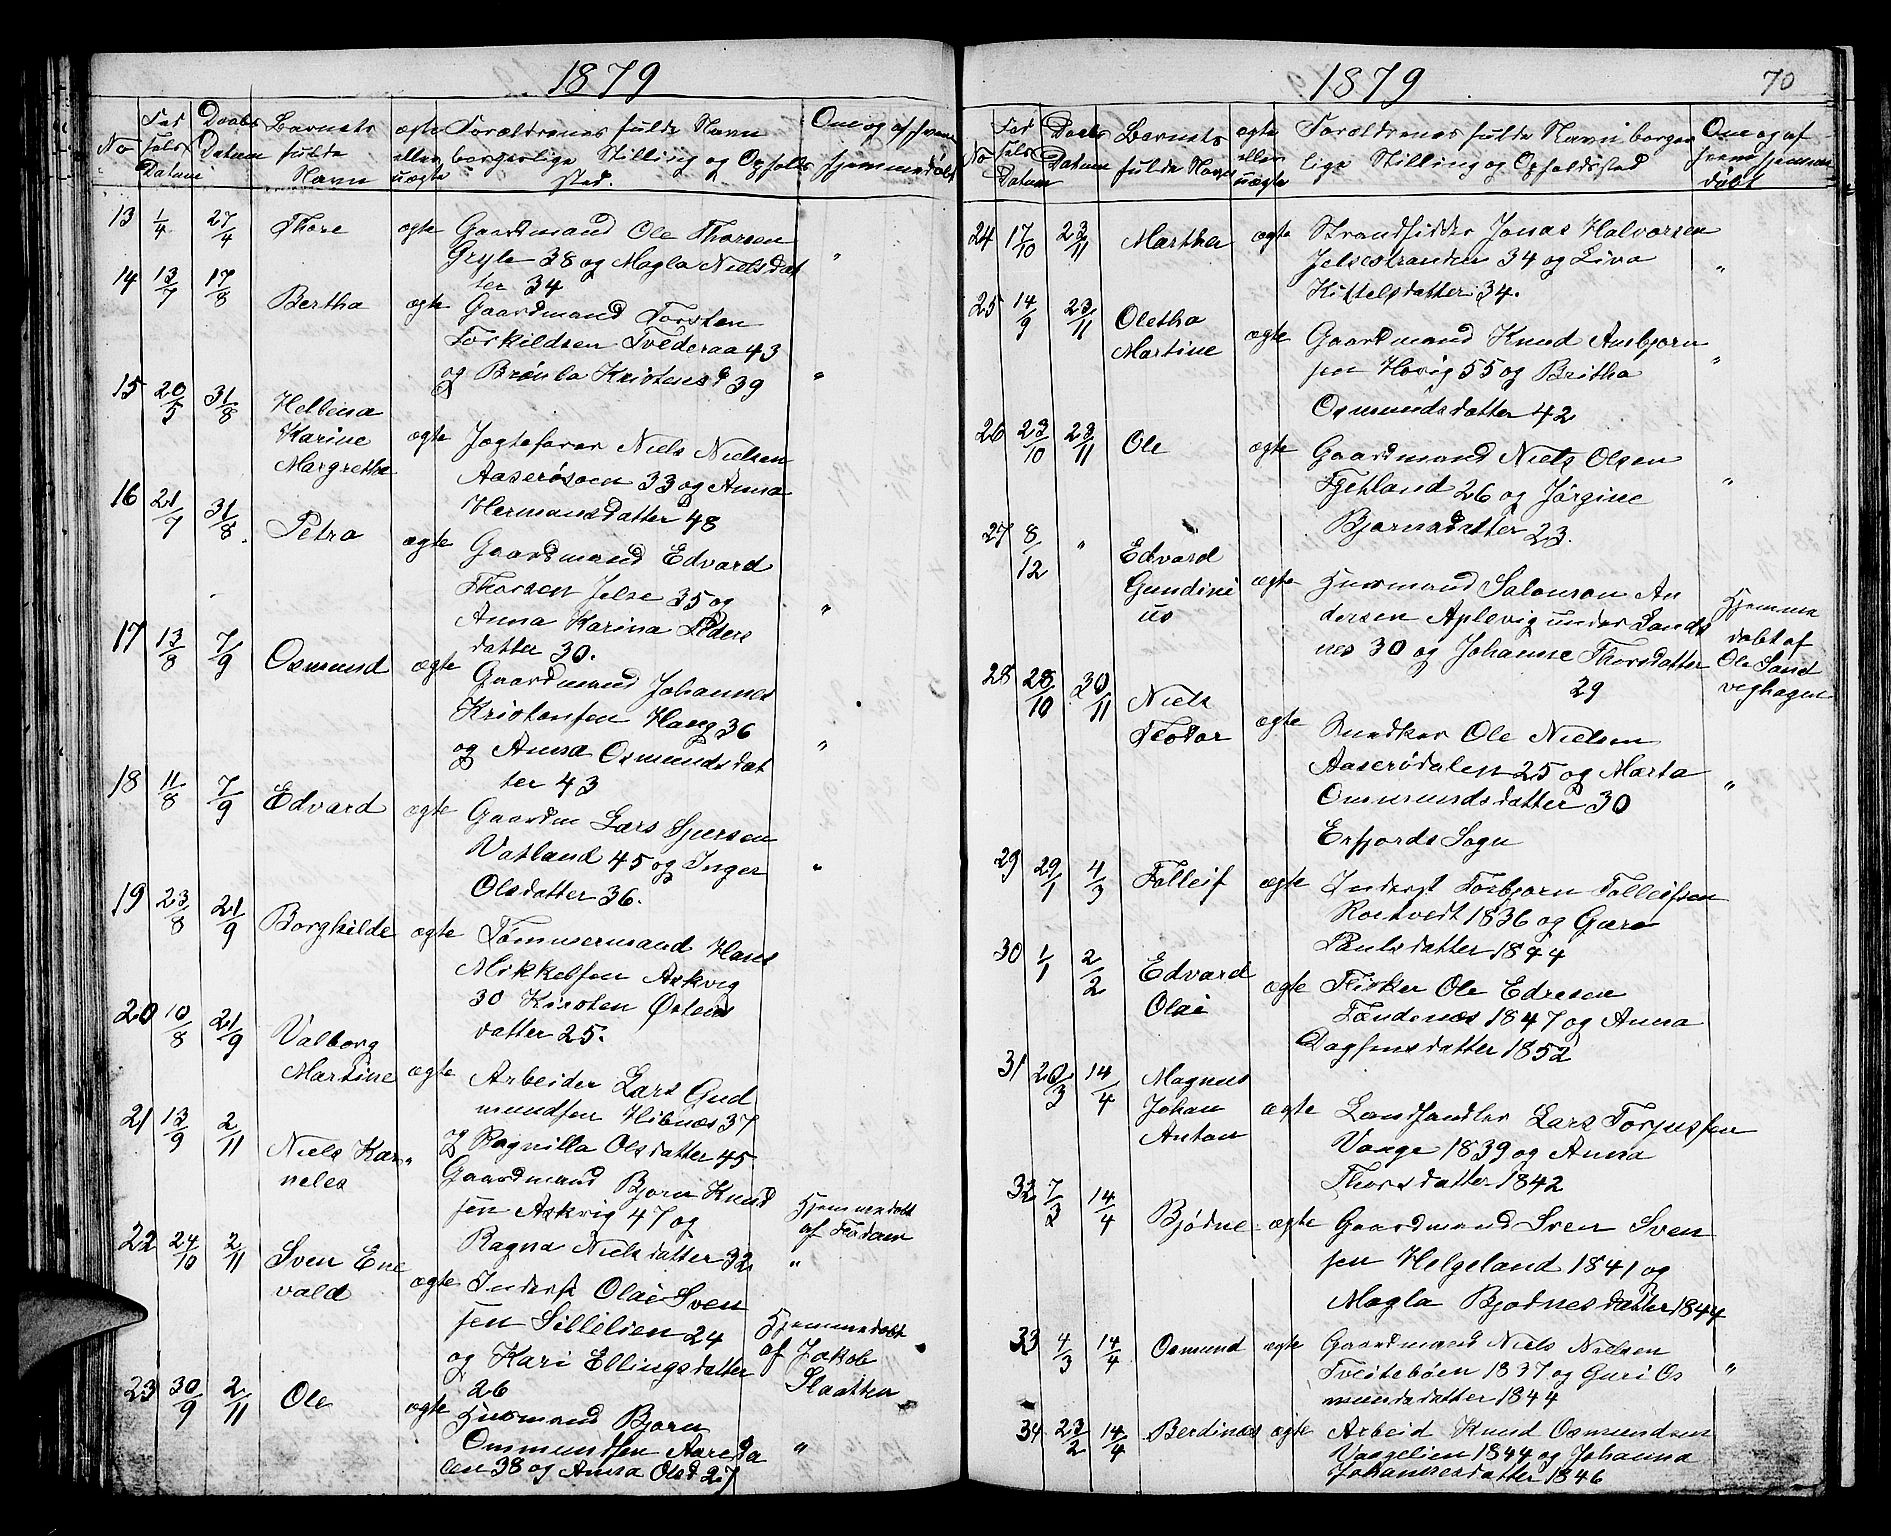 1879
No Fødsels Datum Daabs Datum Barnets fulde Navn ægte eller uægte Forældrenes fulde Navn borgerlige Stilling og Opholdssted. Om og af hvem hjemmedøbt
13 1/4 27/4 Thore ægte Gaardmand Ole Thorsen
Gryle 38 og Magla Nielsdat
ter 34 "
14 13/7 17/8 Bertha ægte Gaardmand Torsten
Torkildsen Tvederaa 43
og Brønla Kristensd 39 "
15 20/5 31/8 Hellina
Karine
Margrethe ægte Jagtefører Niels Nielsen
Aaserøsoen 33 og Anna
Hermansdatter 48
16 21/7 31/8 Petra ægte Gaardmand Edvard
Thorsen Jelse 35 og
Anna Karina Peders
datter 30. "
17 13/8 7/9 Osmund ægte Gaardmand Johannes
Kristensen Haug 36
og Anna Osmundsdat
ter 43 "
18 11/8 7/9 Edvard ægte Gaardm Lars Sjursen
Vatland 45 og Inger
Olsdatter 36. "
19 23/8 21/9 Borghilde ægte Tømmermand Hans
Mikkelsen Askvig
30 Kirsten Østens
datter 25.
20 10/8 21/9 Valborg
Martine ægte Arbeider Lars Gud
mundsen Hibnæs 37
og Ragnilla Olsdatter 45
21 13/9 2/11 Niels Kar
neles " Gaardmand Bjorn Knud
sen Askvig 47 og
Ragna Nielsdatter 32 Hjemmedøbt
af
"
22 24/10 2/11 Sven Ene
vald ægte Inderst Olai Sven
sen Sillelien 24
og Kari Ellingsdatter
26 Hjemmedøbt
af Jakob
Slaatten
23 30/9 2/11 Ole ægte Husmand Bjorn
Ommundsen Aareda
len 38 og Anna Olsd 27 "
1879 70
No Fødsels Datum Daabs Datum Barnets fulde Navn ægte eller uægte Forældrenes fulde Navn borger
lige Stilling og Opholdssted Om og af hvem hjemme
døbt
24 17/10 23/11 Martha ægte Strandsidder Jonas Halvorsen
Jelsestranden 34 og Liva
Kittelsdatter 34. "
25 14/9 23/11 Oletha
Martine ægte Gaardmand Knud Ambjorn
sen Hovig 55 og Britha
Osmundsdatter 42 "
26 23/10 23/11 Ole ægte Gaardmand Niels Olsen
Fjetland 26 og Jørgine
Bjornsdatter 23. "
27 8/12 " Edvard
Gundini
us ægte Husmand Salomon An
dersen Aplevig under Sands
nes 30 og Johanne Thorsdatter
29 Hjemme
døbt af
Ole Sand
veghagen
28 28/10 30/11 Niels
Teodor ægte Snedker Ole Nielsen
Aaserødalen 25 og Marta
Ommundsdatter 30 "
Erfjords Sogn
29 29/1 4/3 Tolleif ægte Inderst Torbjorn Tolleifsen
Roalkvedt 1836 og Guro
Paulsdatter 1844
30 1/1 2/2 Edvard
Olai ægte Fisker Ole Edvesen
Tændenæs 1847 og Anna
Dagfinsdatter 1852
31 20/3 14/4 Magnus
Johan
Anton ægte Landhandler Lars Torjussen
Vaage 1839 og Anna
Thorsdatter 1842
32 7/3 14/4 Bjødne ægte Gaardmand Sven Sven
sen Helgeland 1841 og
Magla Bjodnesdatter 1844
33 4/3 14/4 Osmund ægte Gaardmand Niels Nielsen
Tveitebøen 1837 og Guri Os
mundsdatter 1844 "
34 23/2 14/4 Berdines ægte Arbeid Knud Osmundsen
Vaagelien 1844 og Johanna
Johannesdatter 1846